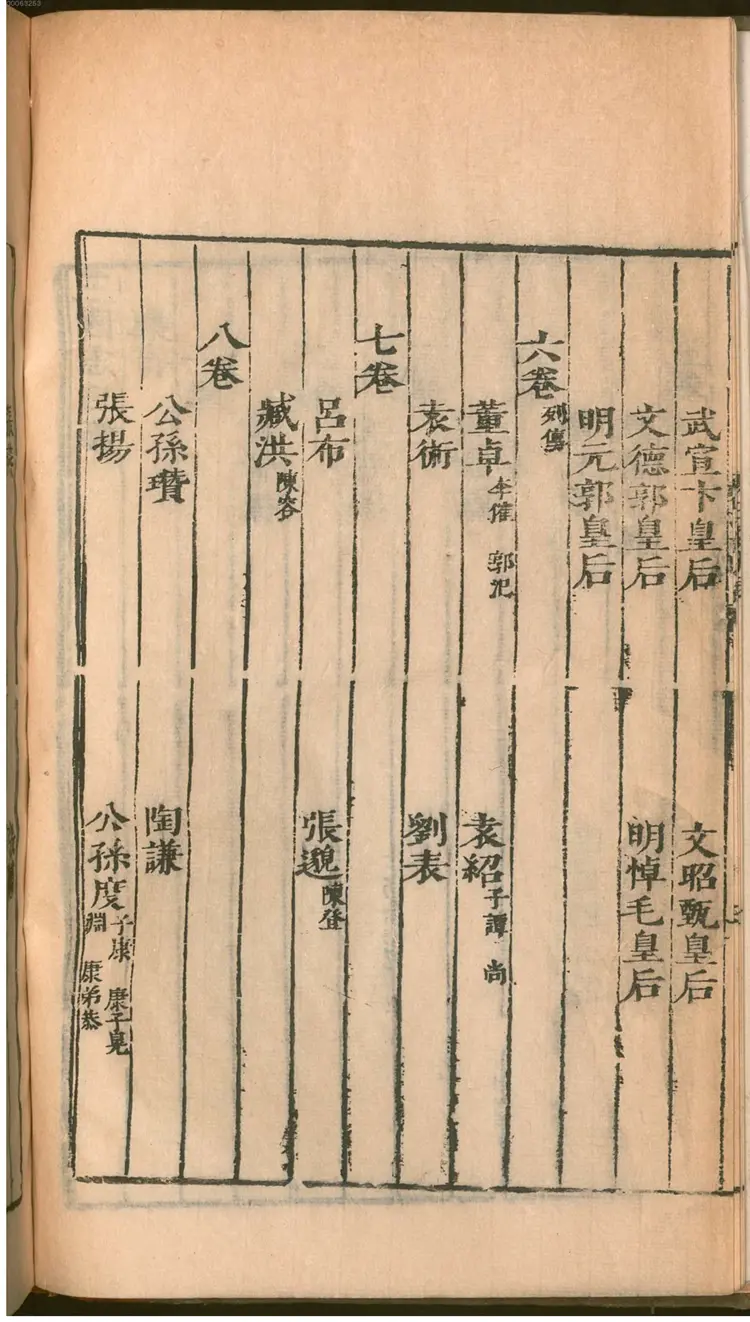 00063263
武宣卞皇后 文昭甄皇后
文德郭皇后 明悼毛皇后
明元郭皇后
六卷 列傳
董卓 李傕 郭汜 袁紹 子譚 尚
袁術 劉表
七卷
呂布 張邈 陳登
臧洪 陳容
八卷
公孫瓚 陶謙
張揚 公孫度 子康 康子晃 淵 康弟恭